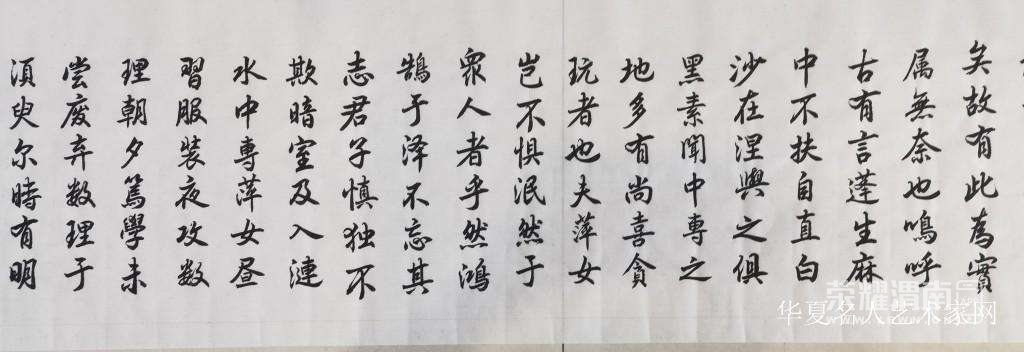 矣故有此為實
属無奈也嗚呼
古有言蓬生麻
中不扶自直白
沙在涅與之俱
黑素聞中專之
地多有尚喜貪
玩者也夫萍女
岂不惧泯然于
眾人者乎然鴻
鵠于泽不忘其
志君子慎独不
欺暗室及入漣
水中專萍女昼
習服裝夜攻数
理朝夕篤學未
尝废弃数理于
須臾尔時有明
荣耀渭南网
华夏名人艺术家网